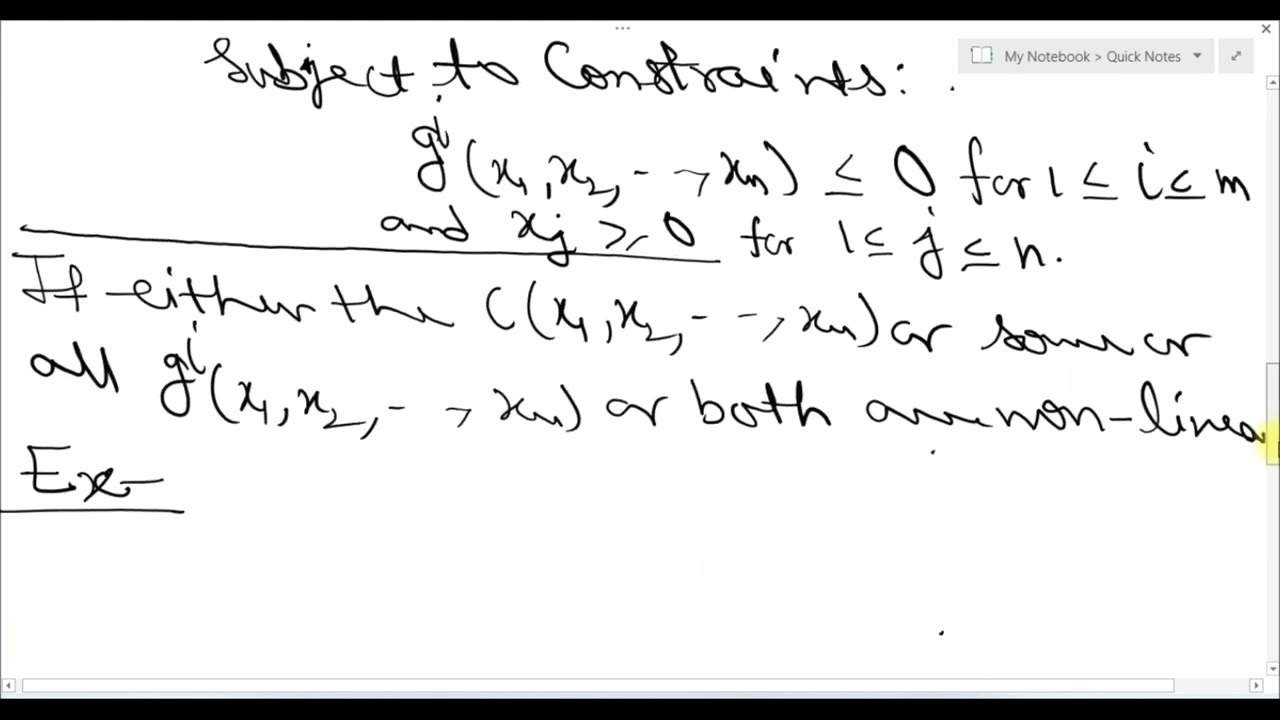 My Notebook > Quick Notes
Subject to Constraints:
gⁱ(x₁, x₂, - - , xₙ) ≤ 0 for 1 ≤ i ≤ m
and xⱼ ≥ 0 for 1 ≤ j ≤ n.
If either the C(x₁, x₂, - - -, xₙ) or some or
all gⁱ(x₁, x₂, - - , xₙ) or both are non-linear
Ex-